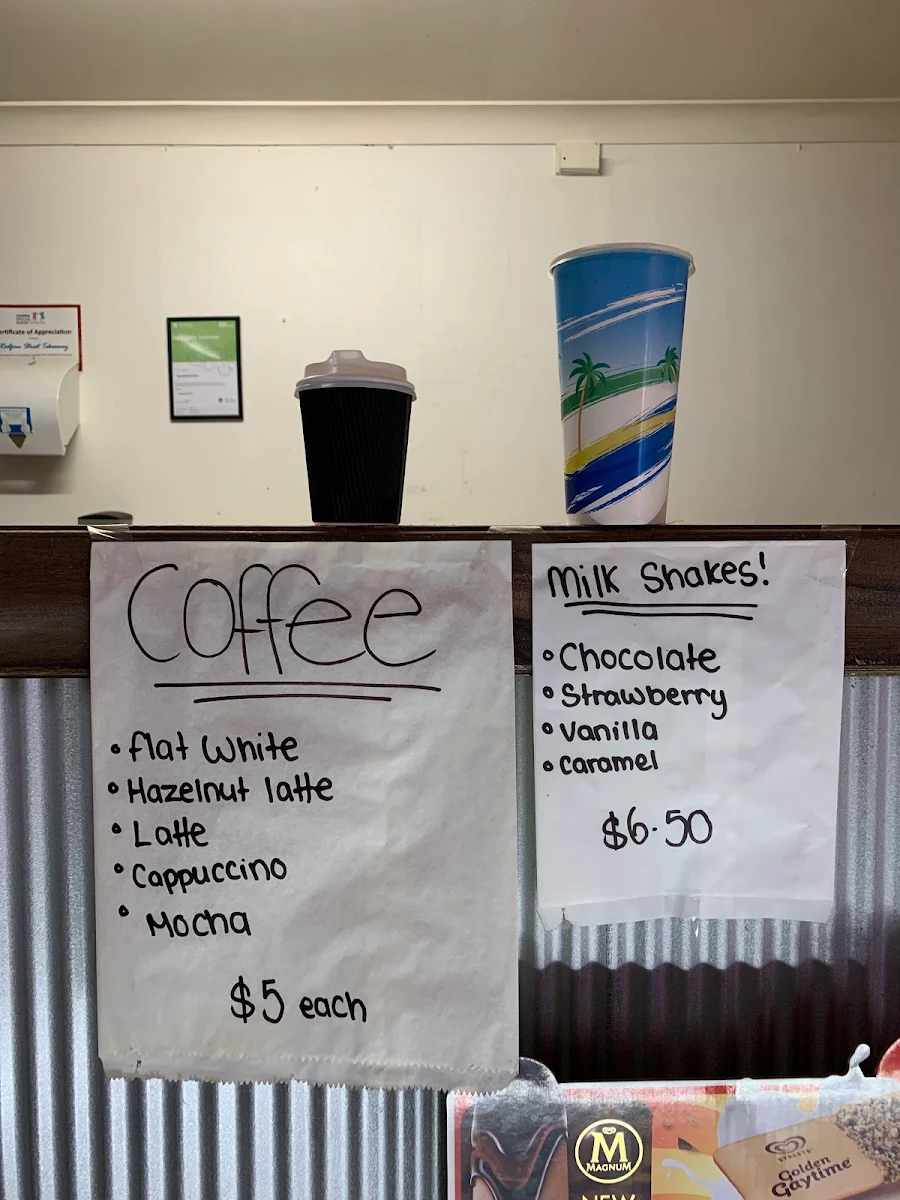 Certificate of Appreciation
Redfern Street Takeaway
Coffee
• Flat White
• Hazelnut latte
• Latte
• Cappuccino
• Mocha
$5 each
Milk Shakes!
• Chocolate
• Strawberry
• Vanilla
• Caramel
$6.50
M
MAGNUM
NEW
STREETS
Golden
Gaytime